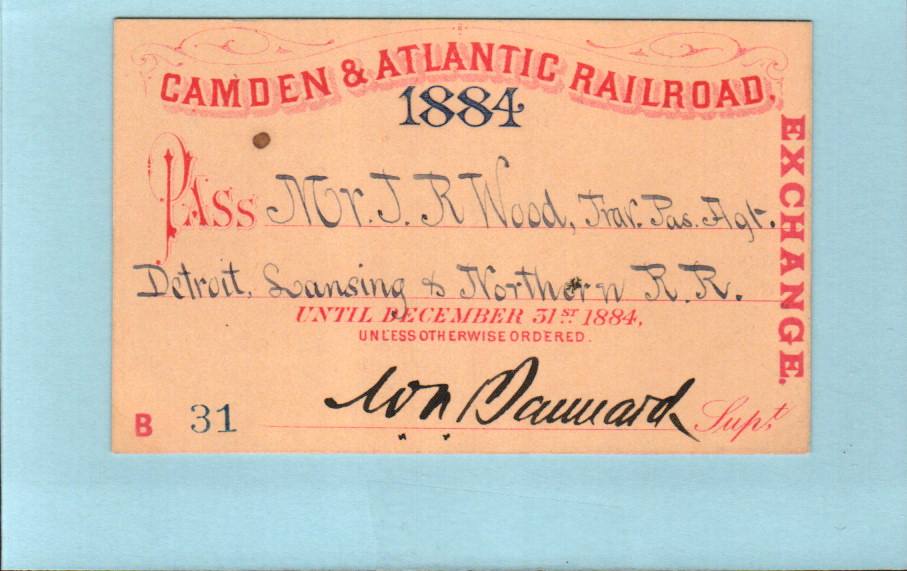 CAMDEN & ATLANTIC RAILROAD,
1884
EXCHANGE.
PASS Mr. J. R Wood, Trav. Pas. Agt.
Detroit, Lansing & Northern R. R.
UNTIL DECEMBER 31ST 1884,
UNLESS OTHERWISE ORDERED.
B 31 Wm Bannard Supt